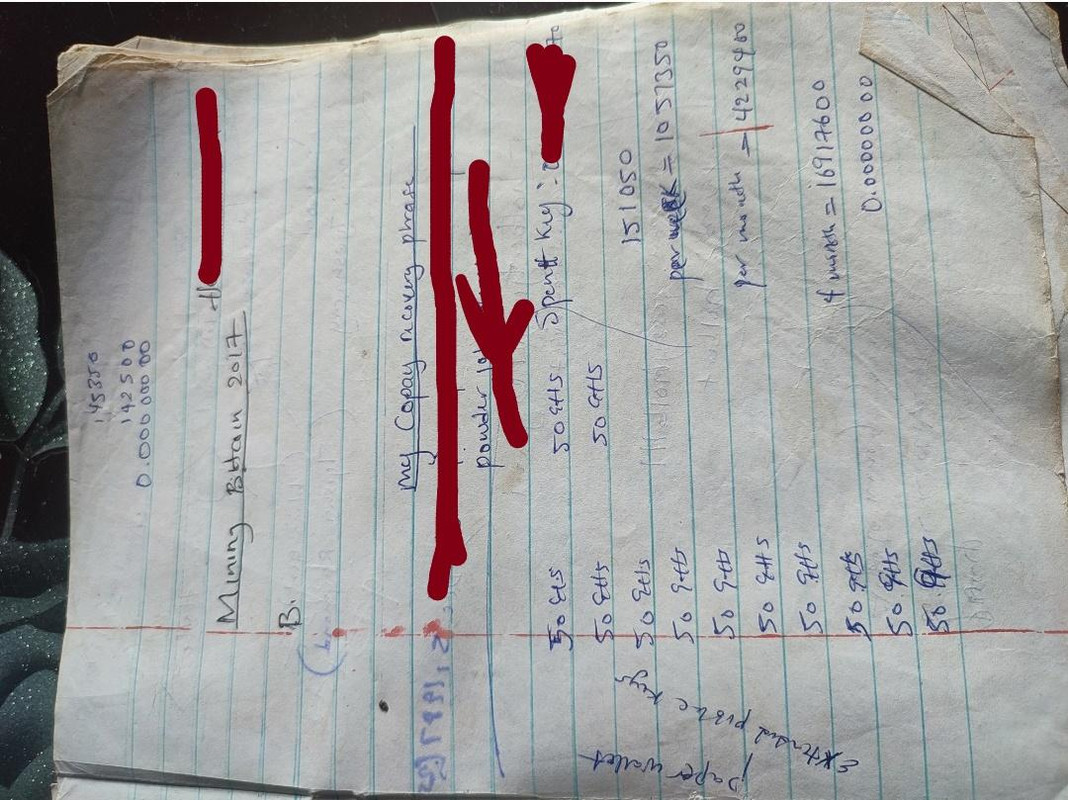 145350
142500
0.00000000
Mining Bitcoin 2017
B.
my Copay recovery phrase
powder
50 GHS Spent key:
50 GHS
151050
per week = 1057350
per month = 4229400
4 month = 16917600
0.00000000
50 GHS
50 GHS
50 GHS
50 GHS
50 GHS
50 GHS
50 GHS
50 GHS
50 GHS
50 GHS
paper wallet
Extended public keys